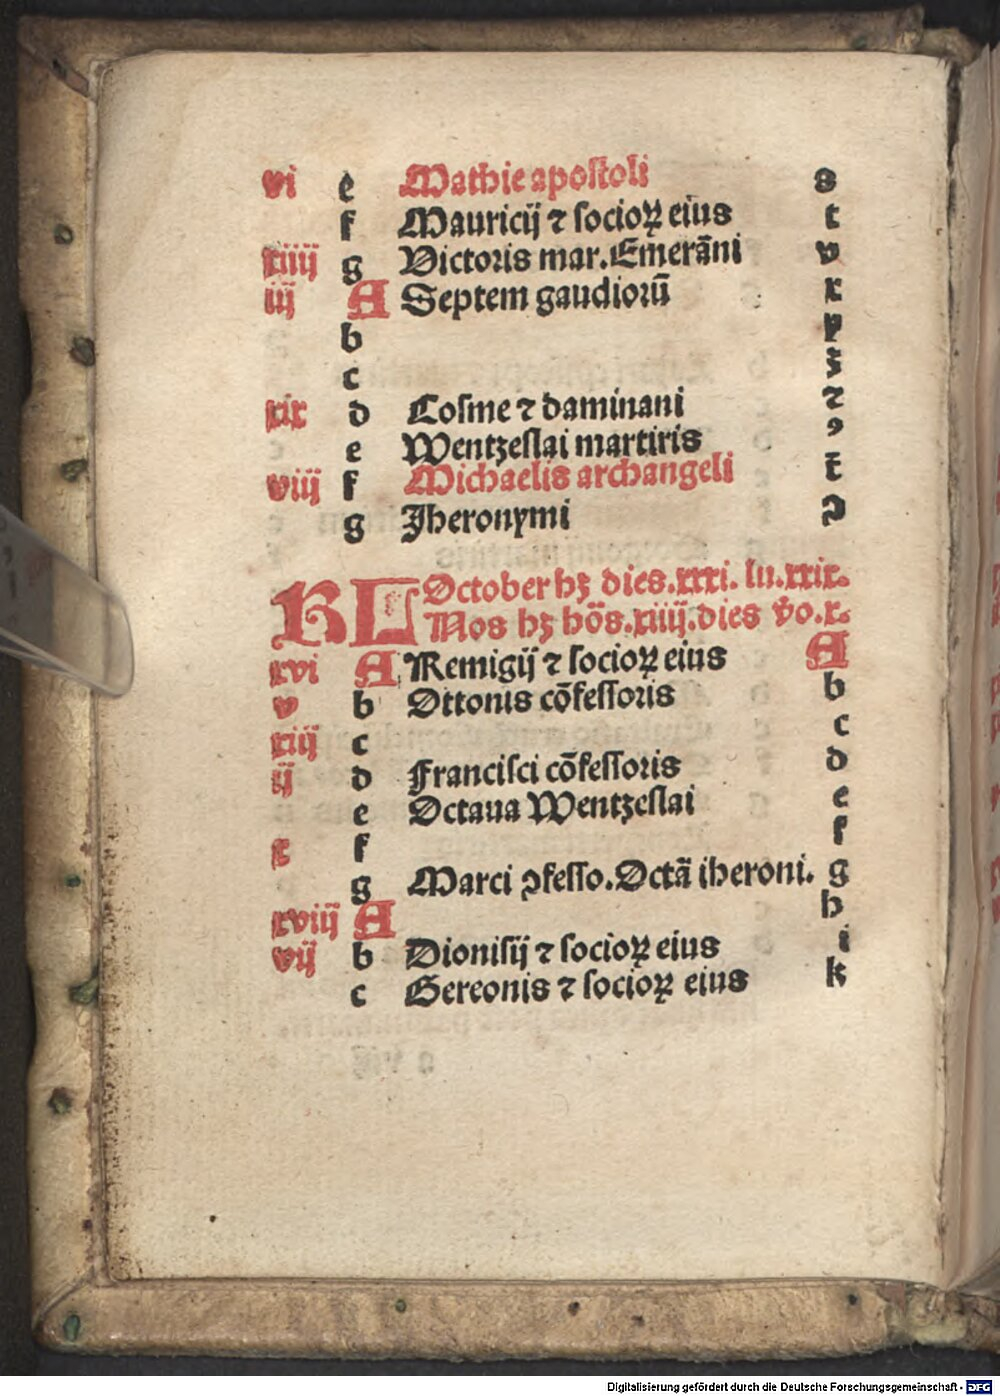 vi e Mathie apostoli s
f Mauricij ⁊ socioꝝ eius t
xiiij g Victoris mar. Emerāni v
iij A Septem gaudiorū x
b y
c ꝫ
xix d Cosme ⁊ daminani ⁊
e Wentzeslai martiris ꝰ
viij f Michaelis archangeli t̄
g Jheronymi ꝓ
KL October hꝫ dies.xxxi. lu.xxix.
Nos hꝫ hōs.xiiij.dies v̄o.x.
xvi A Remigij ⁊ socioꝝ eius A
v b Ottonis cōfessoris b
xiij c c
ij d Francisci cōfessoris d
e Octaua Wentzeslai e
x f f
g Marci ꝯfesso.Octā iheroni. g
xviij A h
vij b Dionisij ⁊ socioꝝ eius i
c Gereonis ⁊ socioꝝ eius k
Digitalisierung gefördert durch die Deutsche Forschungsgemeinschaft - DFG